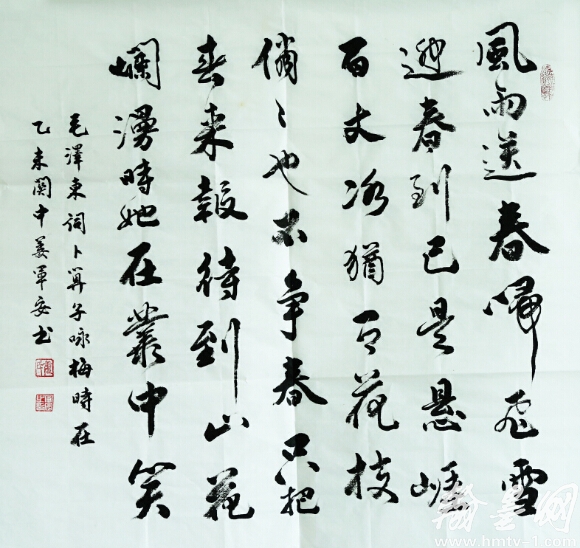 風雨送春歸飛雪
迎春到已是懸崕
百丈冰猶有花枝
俏〻也不争春只把
春来報待到山花
爛漫時她在叢中笑
毛澤東詞卜算子咏梅時在
乙未関中姜軍安书
翰墨网
www.hmtv-1.com